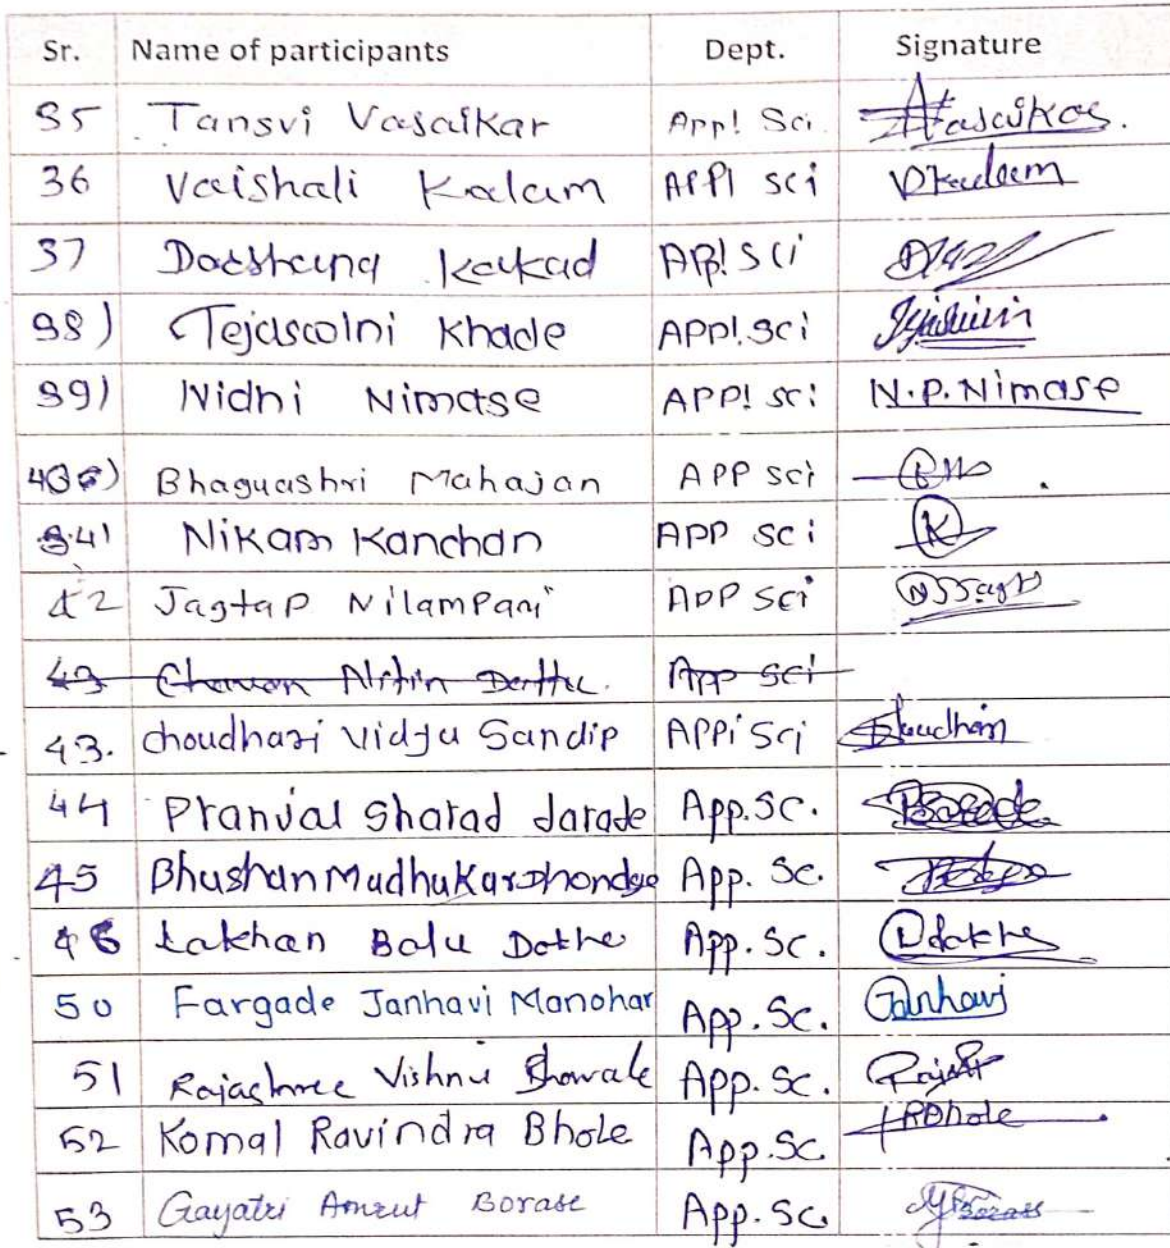 Sr. Name of participants Dept. Signature
35 Tansvi Vasaikar App! Sci.
36 Vaishali Kadam APPl sci Vkadam
37 Darshana Kakad APP! Sci
38) Tejaswini Khade APP! sci
39) Nidhi Nimase APP! sci N.P.Nimase
40) Bhaguashri Mahajan APP sci
41 Nikam Kanchan APP sci K
42 Jagtap Nilampari APP sci
43 Chavan Nitin Dattu. App sci
43. choudhari Vidya Sandip APPl Sci Choudhari
44 Pranjal Sharad darade App.Sc.
45 Bhushan Madhukar App. Sc.
46 Lakhan Balu Dathe App. Sc.
50 Fargade Janhavi Manohar App. Sc. Janhavi
51 Rajashree Vishnu App. Sc.
52 Komal Ravindra Bhole App.Sc. KRBhole
53 Gayatri Amrut Borase App.Sc.